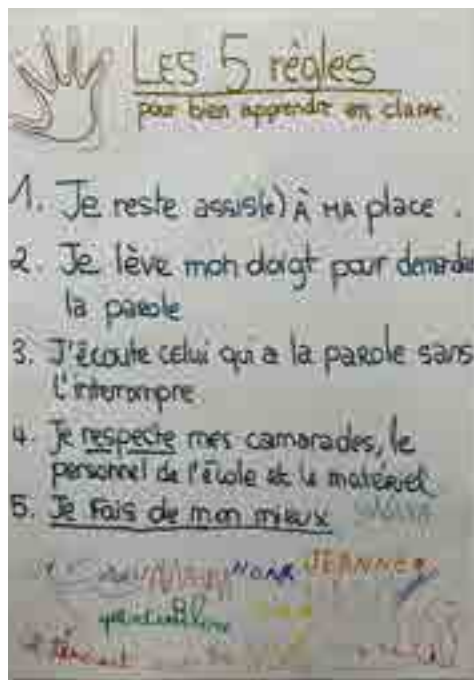 LES 5 règles
pour bien apprendre en classe.
1. Je reste assis(e) À MA place.
2. Je lève mon doigt pour demander
la parole
3. J'écoute celui qui a la parole sans
l'interrompre
4. Je respecte mes camarades, le
personnel de l'école et le matériel
5. Je fais de mon mieux
NOAR JEANNE